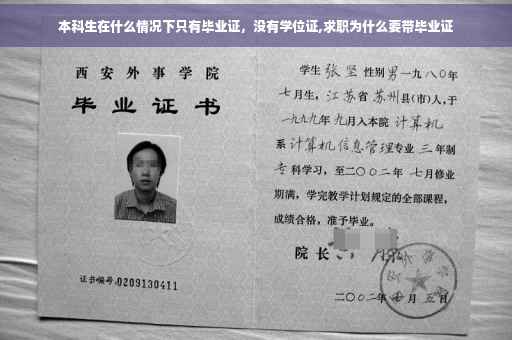 本科生在什么情况下只有毕业证，没有学位证,求职为什么要带毕业证
西安外事学院
毕业证书
证书编号:0209130411
学生 张坚 性别 男 一九八〇年
七月生，江苏省 苏州县(市)人,于
一九九九年 九月入本院 计算机
系 计算机信息管理专业 三 年制
专科学习，至二〇〇二年 七月修业
期满，学完教学计划规定的全部课程，
成绩合格，准予毕业。
院长
二〇〇二年 月 五日